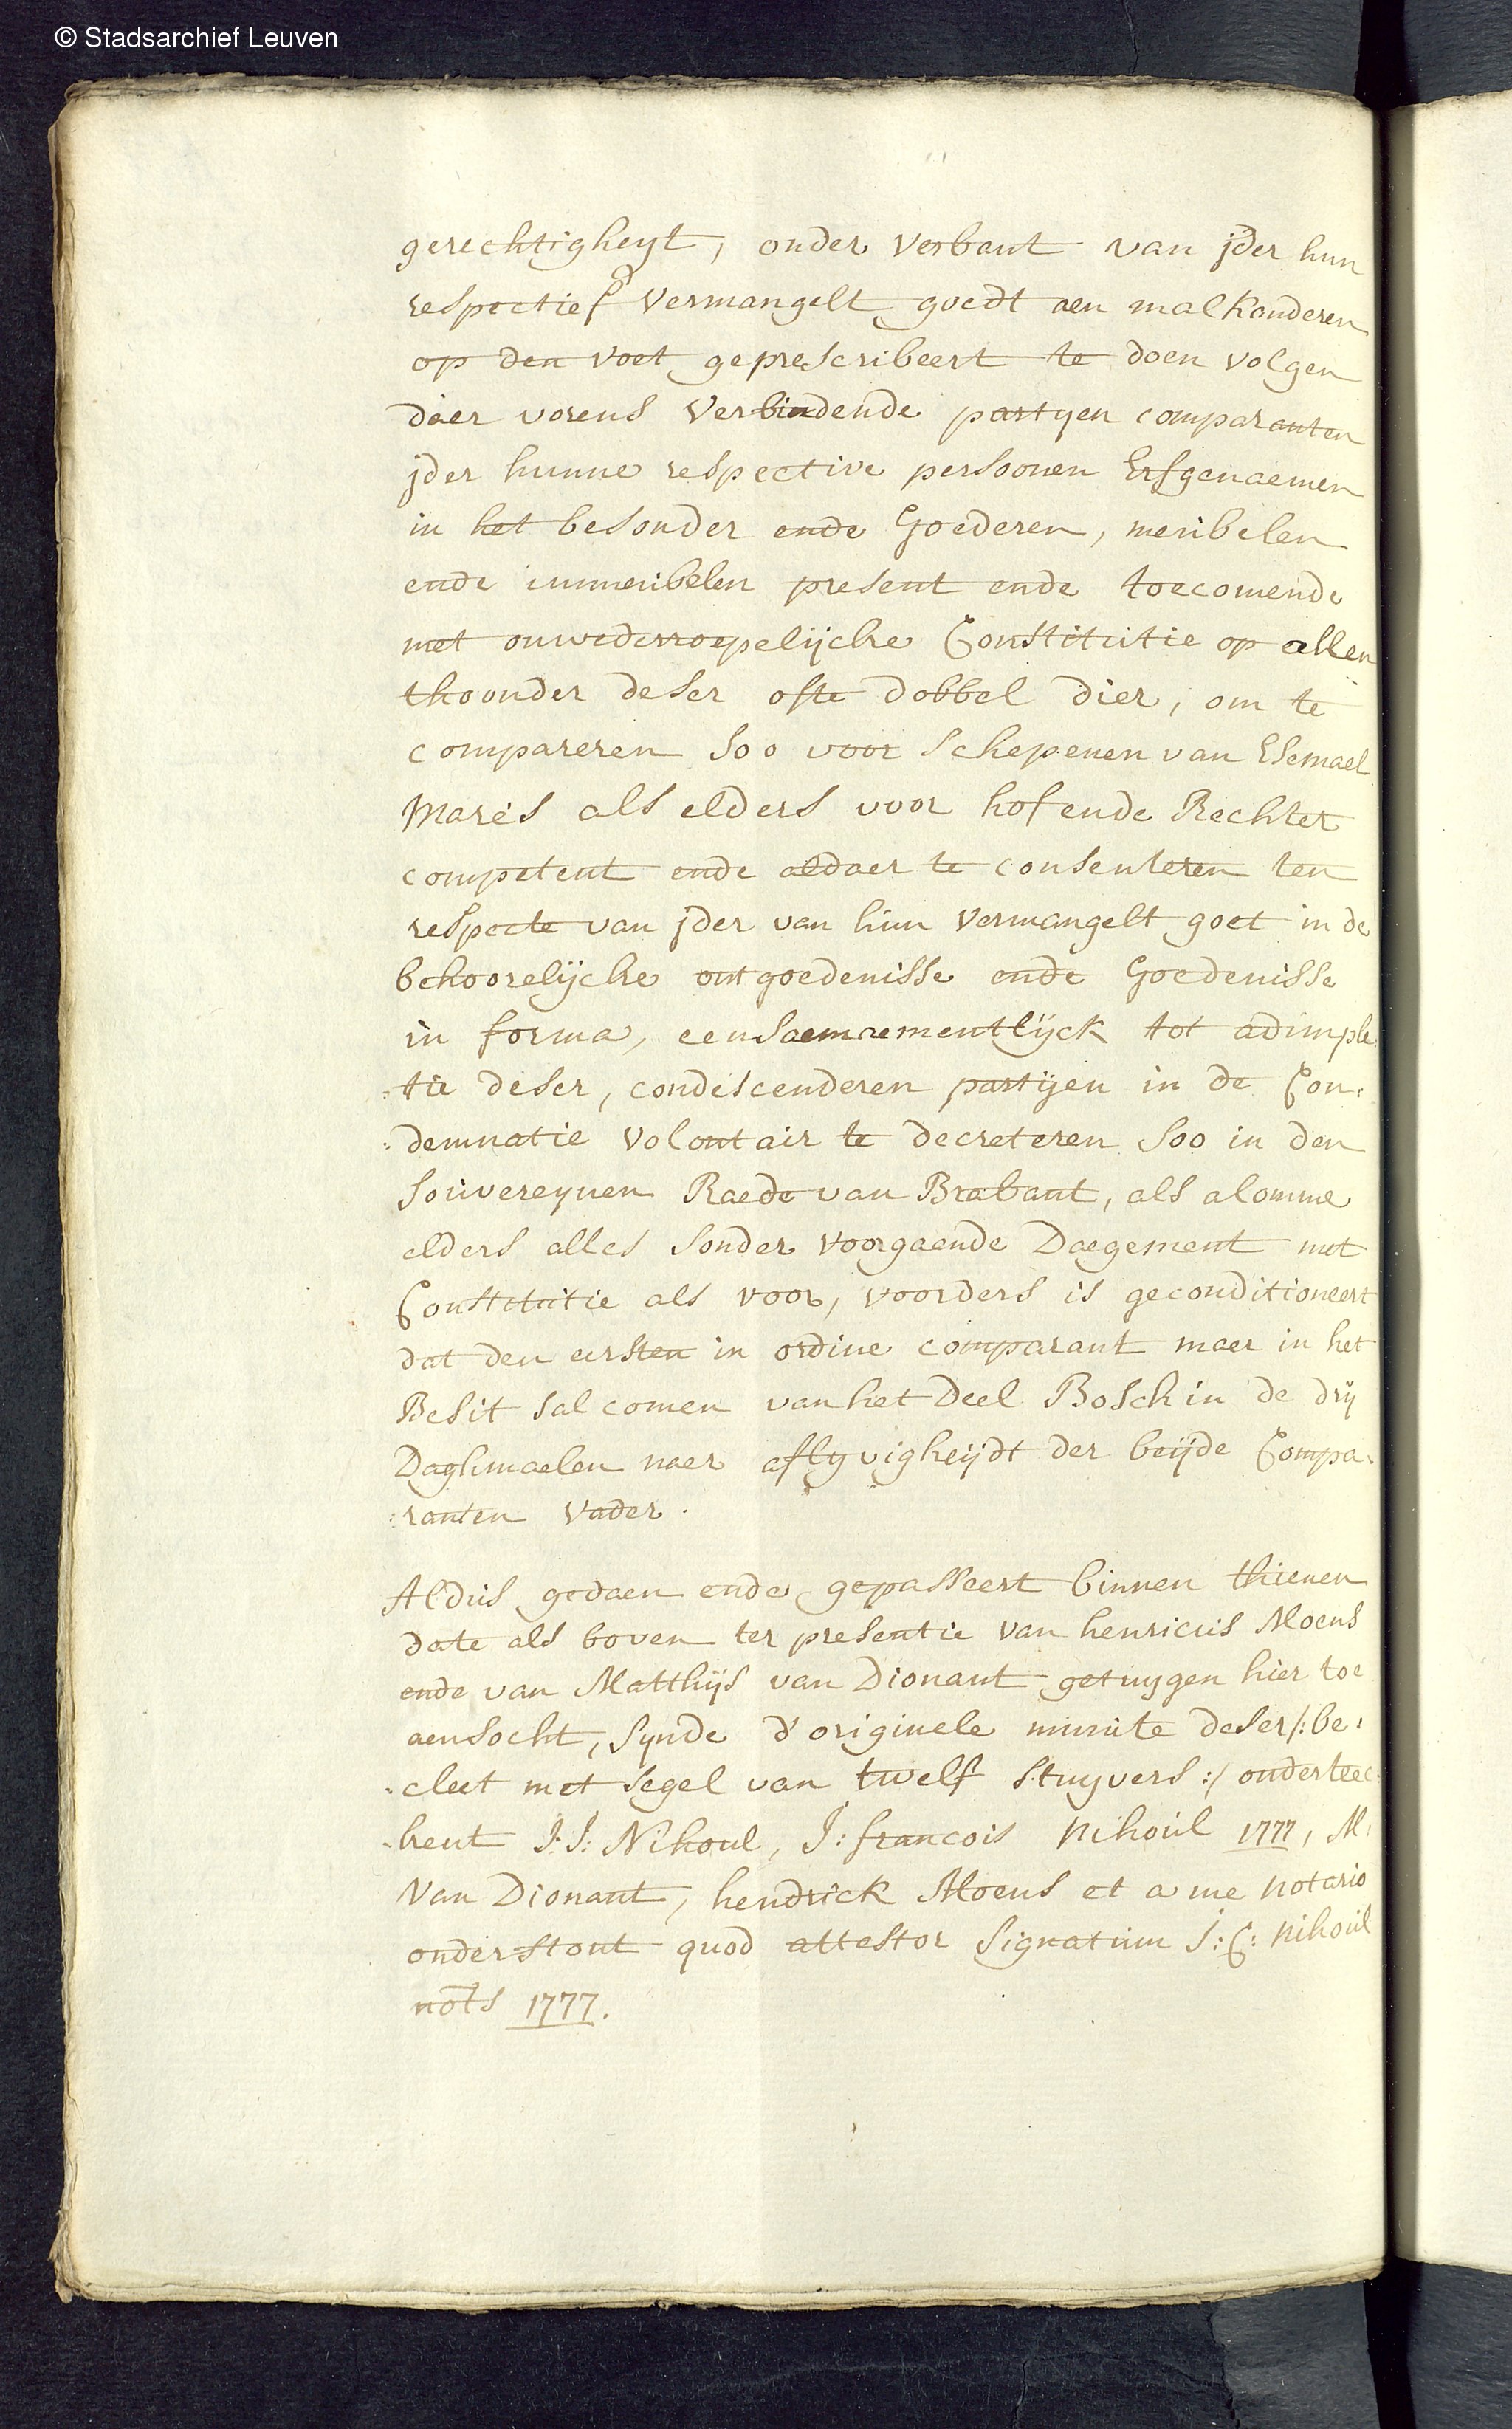 © Stadsarchief Leuven
gerechtigheyt, onder verbant van jder hun
respectief vermangelt goedt aen malkanderen
op den voet geprescribeert te doen volgen
daer vorens verbindende partyen comparanten
jder hunne respective persoonen Erfgenaemen
in het besonder ende Goederen, meubelen
ende immeubelen present ende toecomende
met onwederroepelijcke Constitutie op allen
thoonder deser ofte dobbel dier, om te
compareren soo voor schepenen van Esemael
Marès als elders voor hof ende Rechter
competent ende aldaer te consenteren ten
respecte van jder van hun vermangelt goet in de
behoorelijcke ontgoedenisse ende Goedenisse
in forma, eensaemaementlijck tot adimple
:tie deser, condescenderen partijen in de Con:
:demnatie volontair te decreteren soo in den
souvereynen Raede van Brabant, als alomme
elders alles sonder voorgaende Daegement met
Constitutie als voor, voorders is geconditioneert
dat den eersten in ordine comparant maer in het
Besit sal comen van het Deel Bosch in de drij
Daghmaelen naer aflyvigheijdt der beijde Compa:
:ranten vader.
Aldus gedaen ende gepasseert binnen thienen
date als boven ter presentie van henricus Moens
ende van Matthijs van Dionant getuygen hier toe
aensocht, synde d'originele minute deser /:be:
:cleet met segel van twelf stuyvers:/ onderteec:
:kent J:J: Nihoul, J: francois Nihoul 1777, M:
Van Dionant, hendrick Moens et a me notario
onderstont quod attestor signatum J:C: Nihoul
nots 1777.